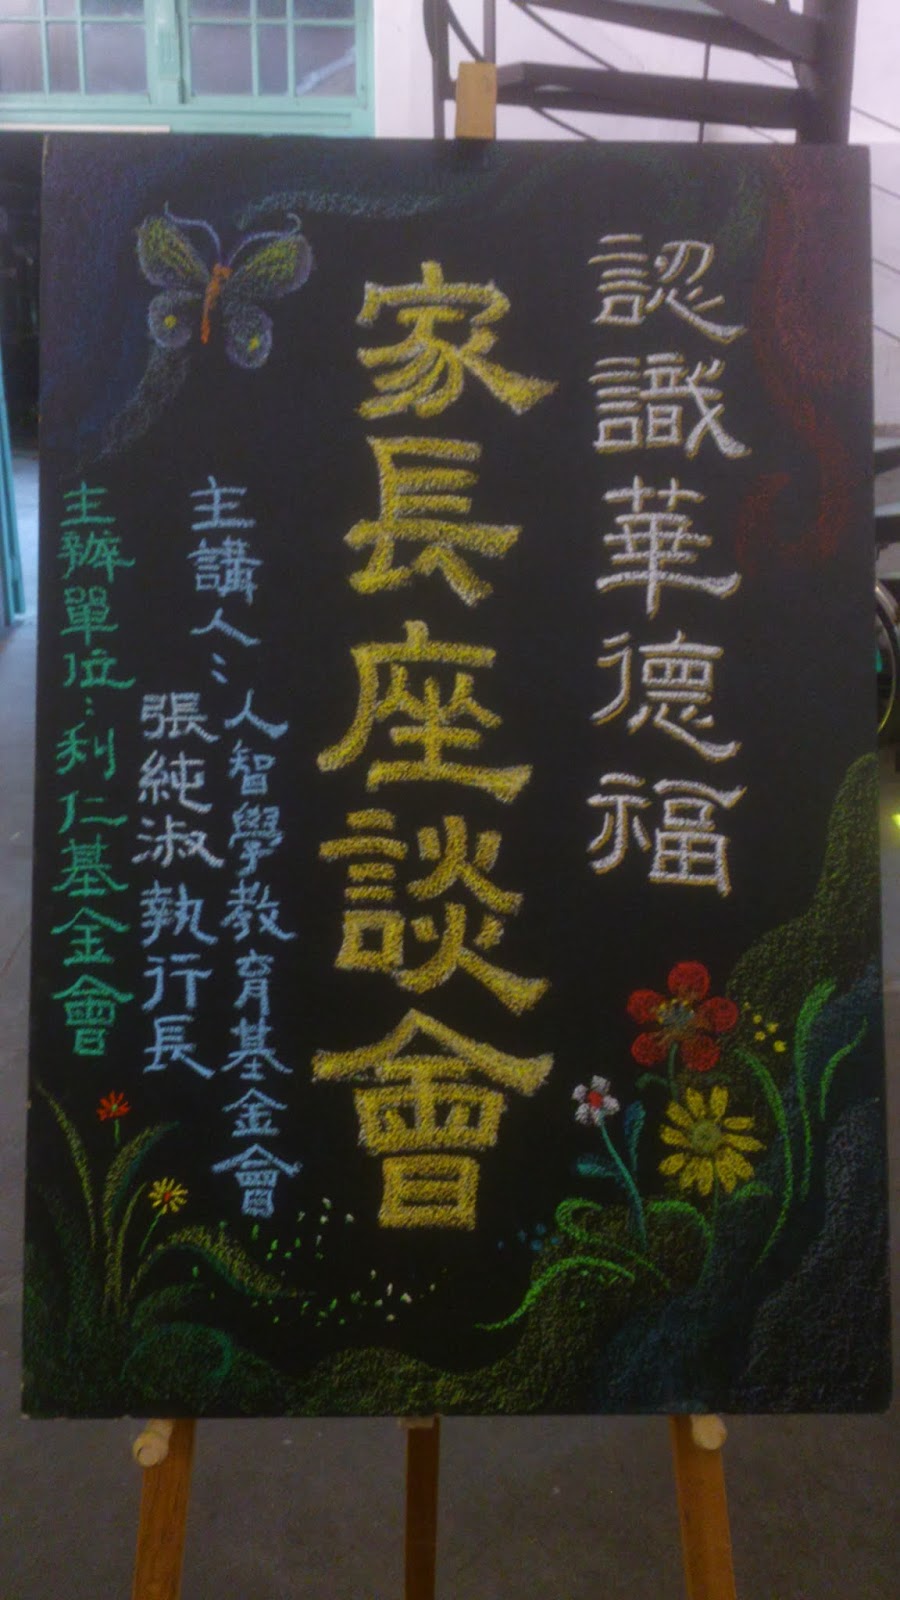 認識華德福
家長座談會
主講人：人智學教育基金會
張純淑執行長
主辦單位：利仁基金會